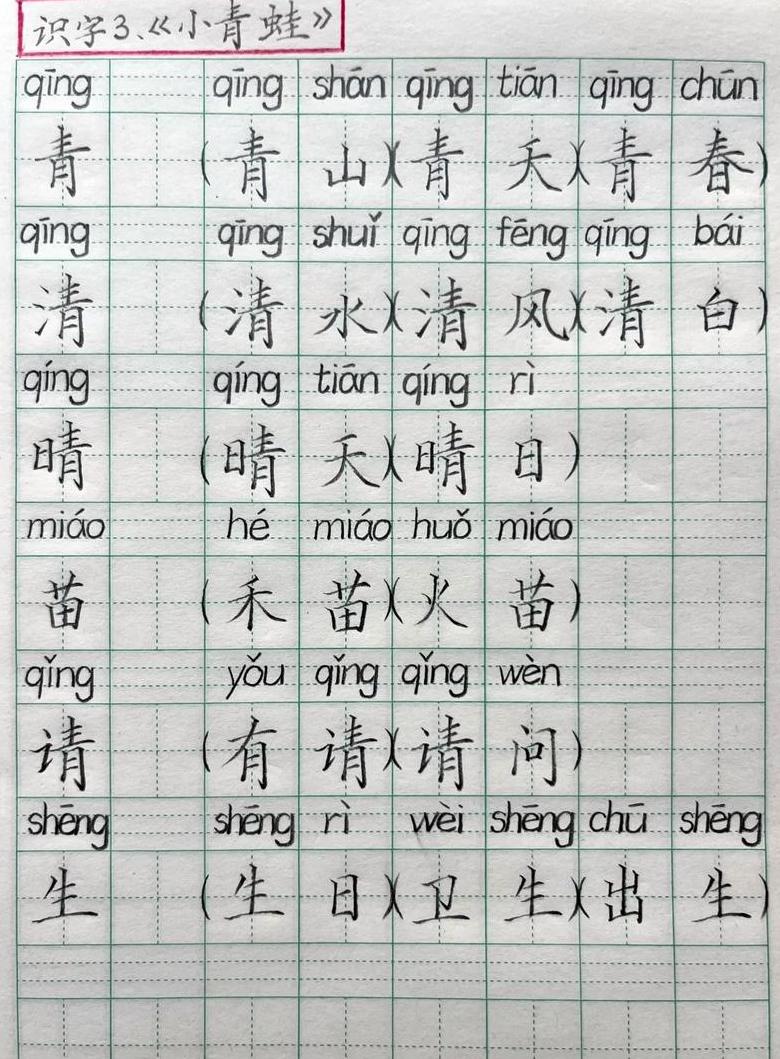 识字3、《小青蛙》
qīng qīng shān qīng tiān qīng chūn
青 (青山)(青天)(青春)
qīng qīng shuǐ qīng fēng qīng bái
清 (清水)(清风)(清白)
qíng qíng tiān qíng rì
晴 (晴天)(晴日)
miáo hé miáo huǒ miáo
苗 (禾苗)(火苗)
qǐng yǒu qǐng qǐng wèn
请 (有请)(请问)
shēng shēng rì wèi shēng chū shēng
生 (生日)(卫生)(出生)